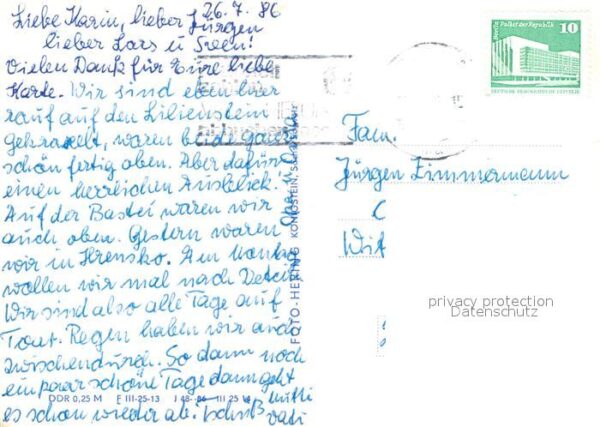 26.7.86
Liebe Karin, lieber Jürgen
lieber Lars u Sven!
Vielen Dank für Eure liebe
Karte. Wir sind eben hier
rauf auf den Lilienstein
gekraxelt, waren beide ganz
schön fertig oben. Aber dafür
einen herrlichen Ausblick!
Auf der Bastei waren wir
auch oben. Gestern waren
wir in Hrensko. Am Montag
wollen wir mal nach Detcin
Wir sind also alle Tage auf
Tour. Regen haben wir auch
zwischendurch. So dann noch
ein paar schöne Tage dann geht
es schon wieder ab. Tschüß
Mutti
Vati
FOTO-HERING KÖNIGSTEIN
DDR 0,25 M III-25-13
Berlin Palast der Republik
10
DEUTSCHE DEMOKRATISCHE REPUBLIK
Fam.
Jürgen Zimmermann
Wit
privacy protection
Datenschutz